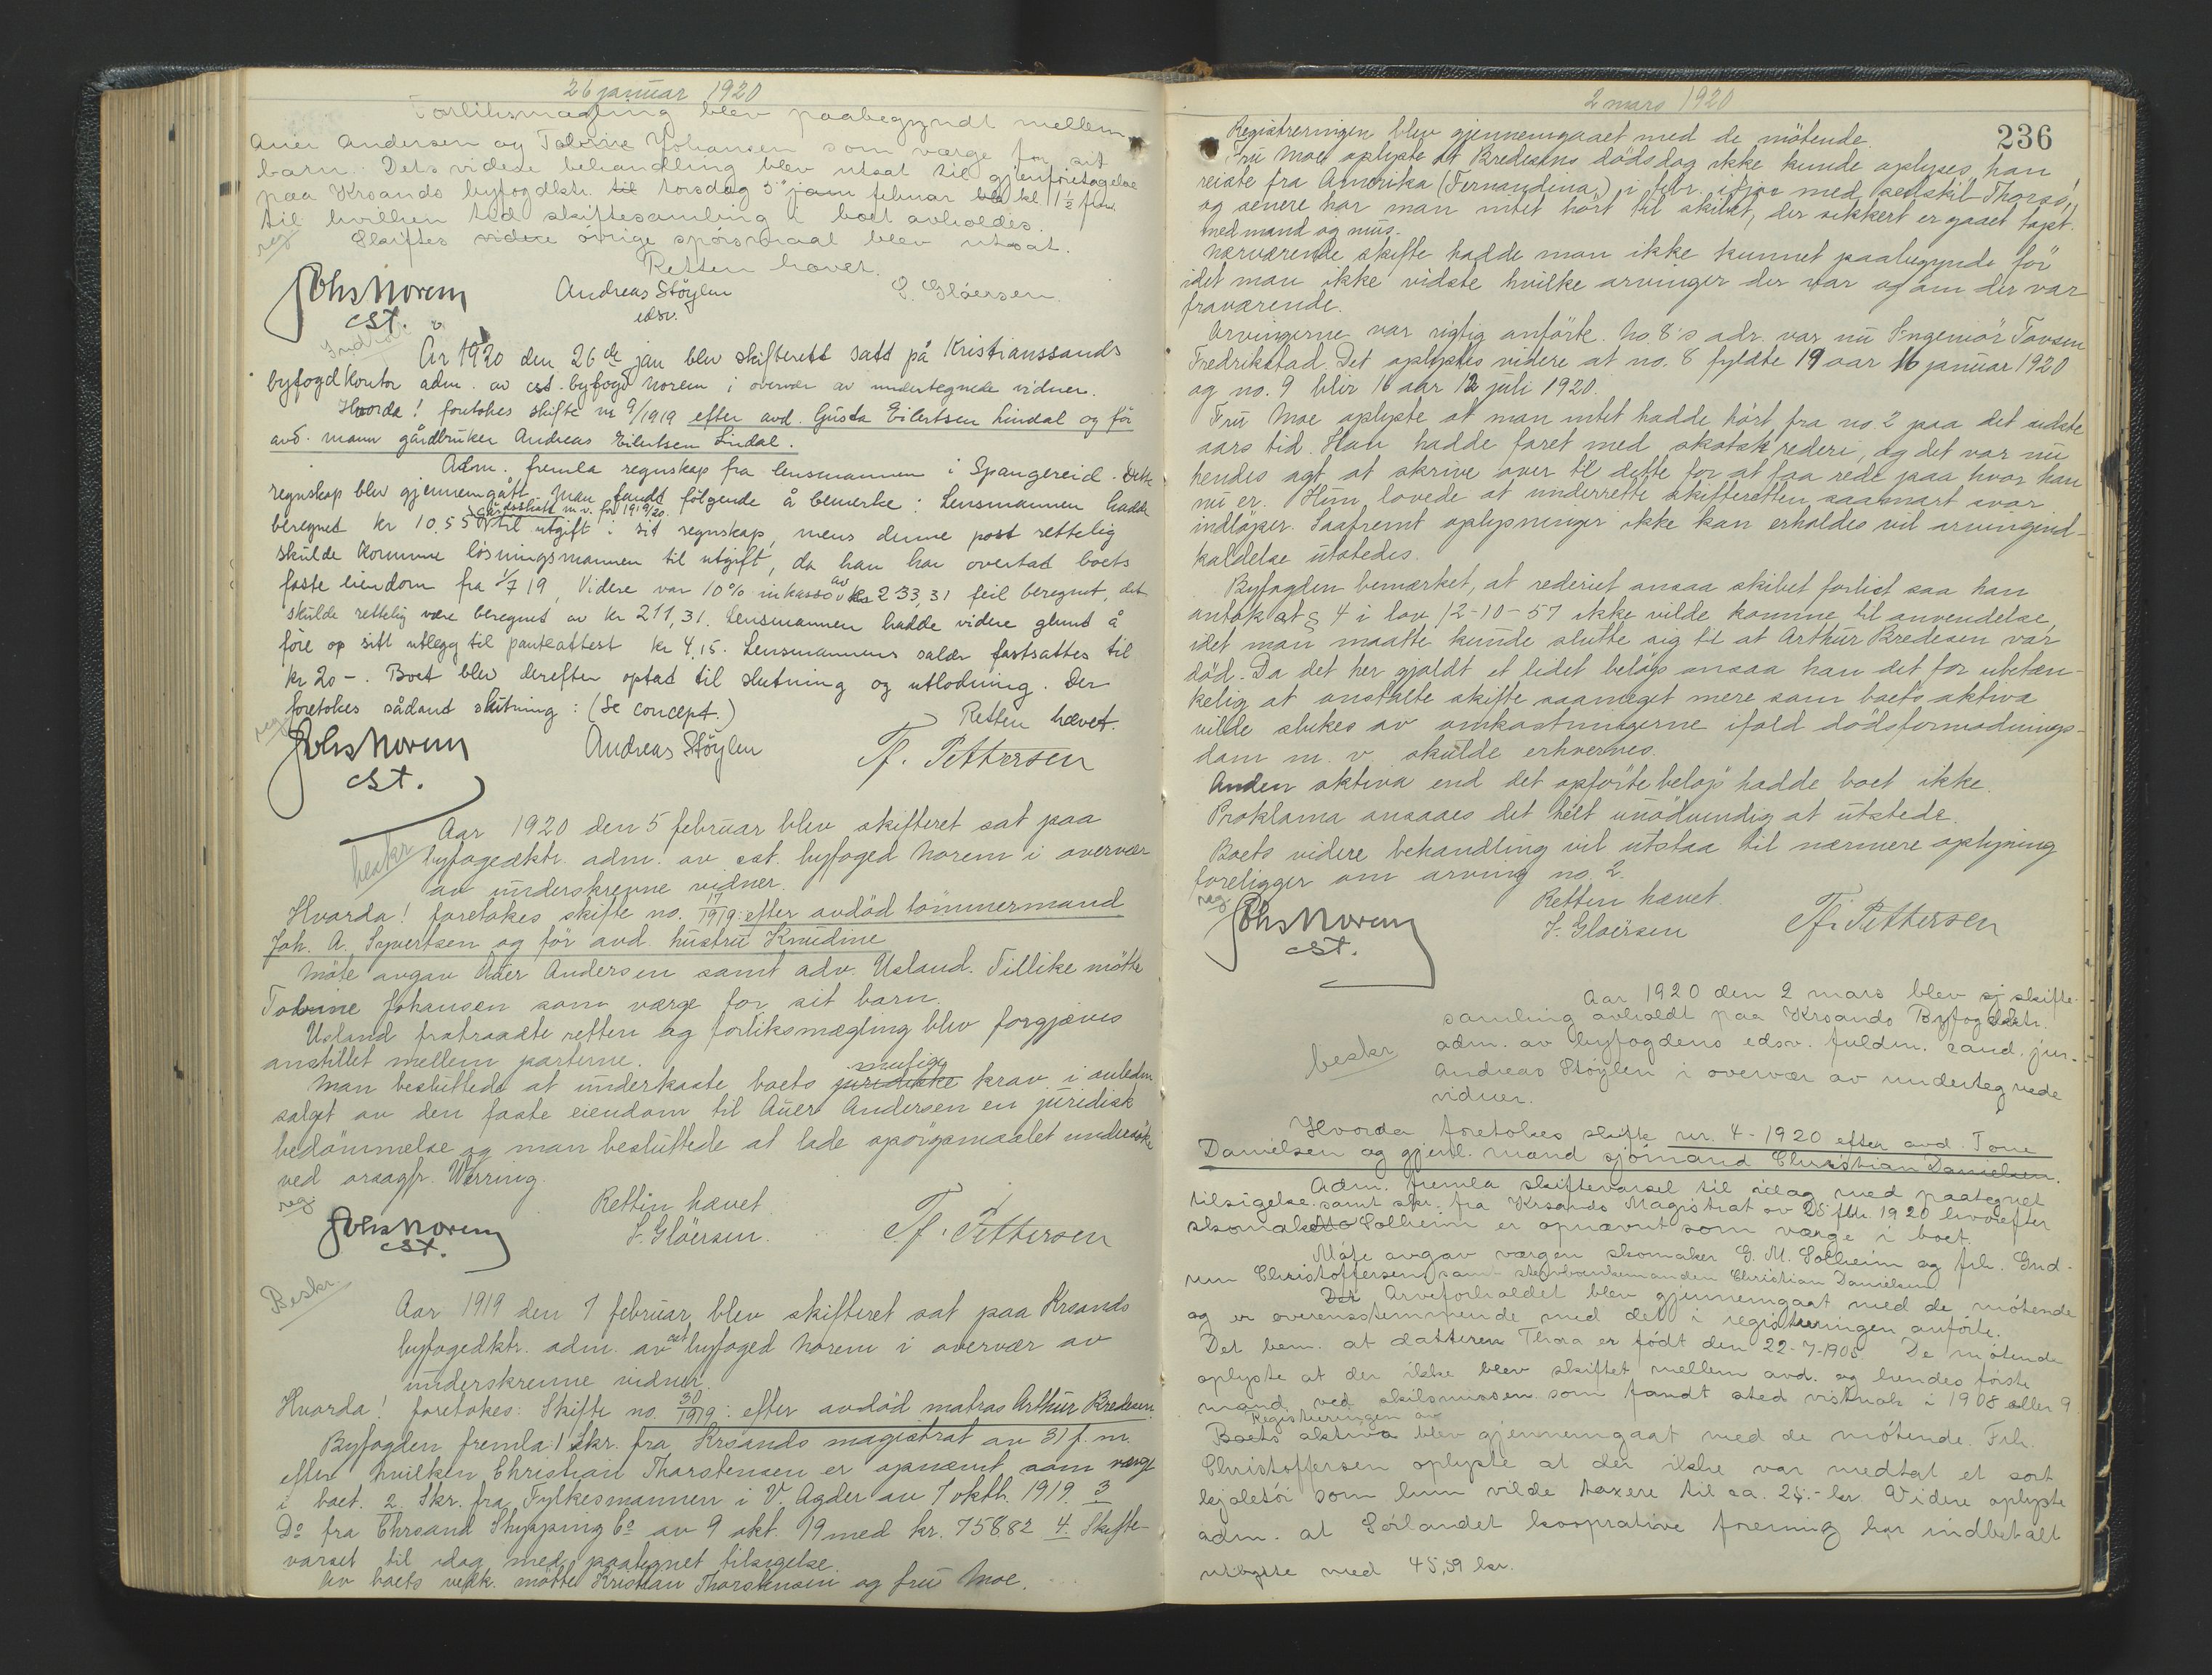 26 januar 1920
Forliksmægling blev paabegyndt mellem
Auer Andersen og Tobine Johansen som værge for sit
barn. Dets videre behandling blev utsat til gjenforetagelse
paa Krsands byfogdktr. til torsdag 5 jam februar kl. 11½ fm.
til hvilken tid skiftesamling i boet avholdes.
reg Skiftes videre övrige spörsmaal blev utsat.
Retten hævet.
Johs Norem Andreas Stöylen S. Glöersen.
cst. edsv.
År 1920 den 26de jan blev skifterett satt på Kristianssands
byfogdkontor adm. av cst. byfogd Norem i overvær av undertegnede vidner.
Hvorda! foretokes skifte nr 9/1919 efter avd. Gusta Eilertsen Lindal og før
avd. mann gårdbruker Andreas Eilertsen Lindal.
Adm. fremla regnskap fra lensmannen i Spangereid. Dette
regnskap blev gjennemgått. Man fandt følgende å bemerke: Lensmannen hadde
beregnet kr 10.55 til utgift i sit regnskap, mens denne post rettelig
skulde komme løsningsmannen til utgift, da han har overtat boets
faste eiendom fra 1/7 19, Videre var 10% inkasso av kr 233,31 feil beregnet, det
skulde rettelig være beregnet av kr 211,31. Lensmannen hadde videre glemt å
føre op sitt utlegg til panteattest kr 4.15. Lensmannens salær fastsattes til
kr 20 -. Boet blev derefter optad til slutning og utlodning. Der
foretokes sådand slutning: (Se concept.)
reg Retten hævet.
Johs Norem Andreas Stöylen Tf. Pettersen
cst.
Aar 1920 den 5 februar blev skifteret sat paa
beskr byfogedktr. adm. av cst. byfoged Norem i overvær
av underskrevne vidner.
Hvorda! foretokes skifte no. 17/1919: efter avdöd tömmermand
Joh. A. Syvertsen og för avd. hustru Knudine
Möte avgav Auer Andersen samt adv. Usland. Tillike mötte
Tobine Johansen som værge for sit barn.
Usland fratraadte retten og forliksmægling blev forgjæves
anstillet mellem parterne.
Man besluttede at underkaste boets juridiske mulige krav i anledn.
salget av den faste eiendom til Auer Andersen en juridisk
bedömmelse og man besluttede at lade spörgsmaalet undersöke
ved orsagfr. Werring.
reg Retten hævet
Johs Norem S. Glöersen. Tf. Pettersen
cst.
Beskr.
Aar 1919 den 7 februar blev skifteret sat paa Krsands
byfogedktr. adm. av cst byfoged Norem i overvær av
underskrevne vidner.
Hvorda! foretokes: Skifte no. 30/1919: efter avdöd matros Arthur Bredesen.
Byfogden fremla: 1 Skr. fra Krsands magistrat av 31 f.m.
efter hvilken Christian Thorstensen er opnævnt som værge
i boet. 2. Skr. fra Fylkesmannen i V. Agder av 7 oktb. 1919. 3
Do fra Chrsand Shipping Co av 9 okt. 19 med kr. 758.82 4. Skifte-
varsel til idag med paategnet tilsigelse.
Av boets vedk. mötte Kristian Thorstensen og fru Moe.
2 mars 1920
236
Registreringen blev gjennemgaaet med de mötende.
Fru Moe oplyste at Bredesens dödsdag ikke kunde oplyses, han
reiste fra Amerika (Fernandina) i febr. med seilskib "Thorsö"
og senere har man intet hört til skibet, der sikkert er gaaet tapt.
med mand og mus.
Nærværende skifte hadde man ikke kunnet paabegynde för
idet man ikke vidste hvilke arvinger der var og om der var
fraværende.
Arvingerne var rigtig anförte. No. 8's adr. var nu Ingeniör Tovsen
Fredrikstad. Det oplystes videre at no. 8 fyldte 19 aar 16 januar 1920
og no. 9 blir 16 aar 12 juli 1920.
Fru Moe oplyste at man intet hadde hört fra no. 2 paa det sidste
aars tid. Han hadde faret med skotsk rederi, og det var nu
hendes agt at skrive over til dette for at faa rede paa hvor han
nu er. Hun lovede at underrette skifteretten saasnart svar
indlöper. Saafremt oplysninger ikke kan erholdes vil arvingind-
kaldelse utstedes.
Byfogden bemærket, at rederiet ansaa skibet forlist saa han
antok at § 4 i lov 12-10-57 ikke vilde komme til anvendelse,
idet man maatte kunde slutte sig til at Arthur Bredesen var
död. Da det her gjaldt et lidet belöp ansaa han det for utvten-
kelig at anstalte skifte saameget mere som boets aktiva
vilde slukes av omkostningerne ifald dödsformodnings-
dom m. v. skulde erhverves.
Anden aktiva end det opförte belöp hadde boet ikke.
Proklama ansaaes det helt unödvendig at utstede.
Boets videre behandling vil utstaa til nærmere oplysning
foreligger om arving no. 2.
reg Retten hævet.
Johs Norem S. Glöersen Tf. Pettersen
cst.
Aar 1920 den 2 mars blev sj skifte-
samling avholdt paa Krsands Byfogdktr.
beskr adm. av byfogdens edsv. fuldm. cand. jur.
Andreas Stöylen i overvær av undertegnede
vidner.
Hvorda foretokes skifte nr. 4 - 1920 efter avd. Tone
Danielsen og gjenl. mand sjömand Christian Danielsen.
Adm. fremla skiftevarsel til idag med paategnet
tilsigelse samt skr. fra Krsands Magistrat av 25 feb. 1920 hvorefter
skomaker Solheim er opnævnt som værge i boet.
Möte avgav værgen skomaker G. M. Solheim og frk. Gud-
run Christoffersen samt stervbomanden Christian Danielsen
Det Arveforholdet blev gjennemgaat med de mötende
og er overensstemmende med det i registreringen anförte.
Det bem. at datteren Thora er födt den 22-7-1905. De mötende
oplyste at der ikke blev skiftet mellem avd. og hendes förste
mand ved skilsmissen som fandt sted vistnok i 1908 eller 9
Registreringen av
Boets aktiva blev gjennemgaat med de mötende. Frk.
Christoffersen oplyste at der ikke var medtat et sort
kjoletöi som hun vilde taxere til ca. 25.- kr. Videre oplyste
adm. at Sörlandet kooprative forening har indbetalt
utbytte med 45,59 kr.